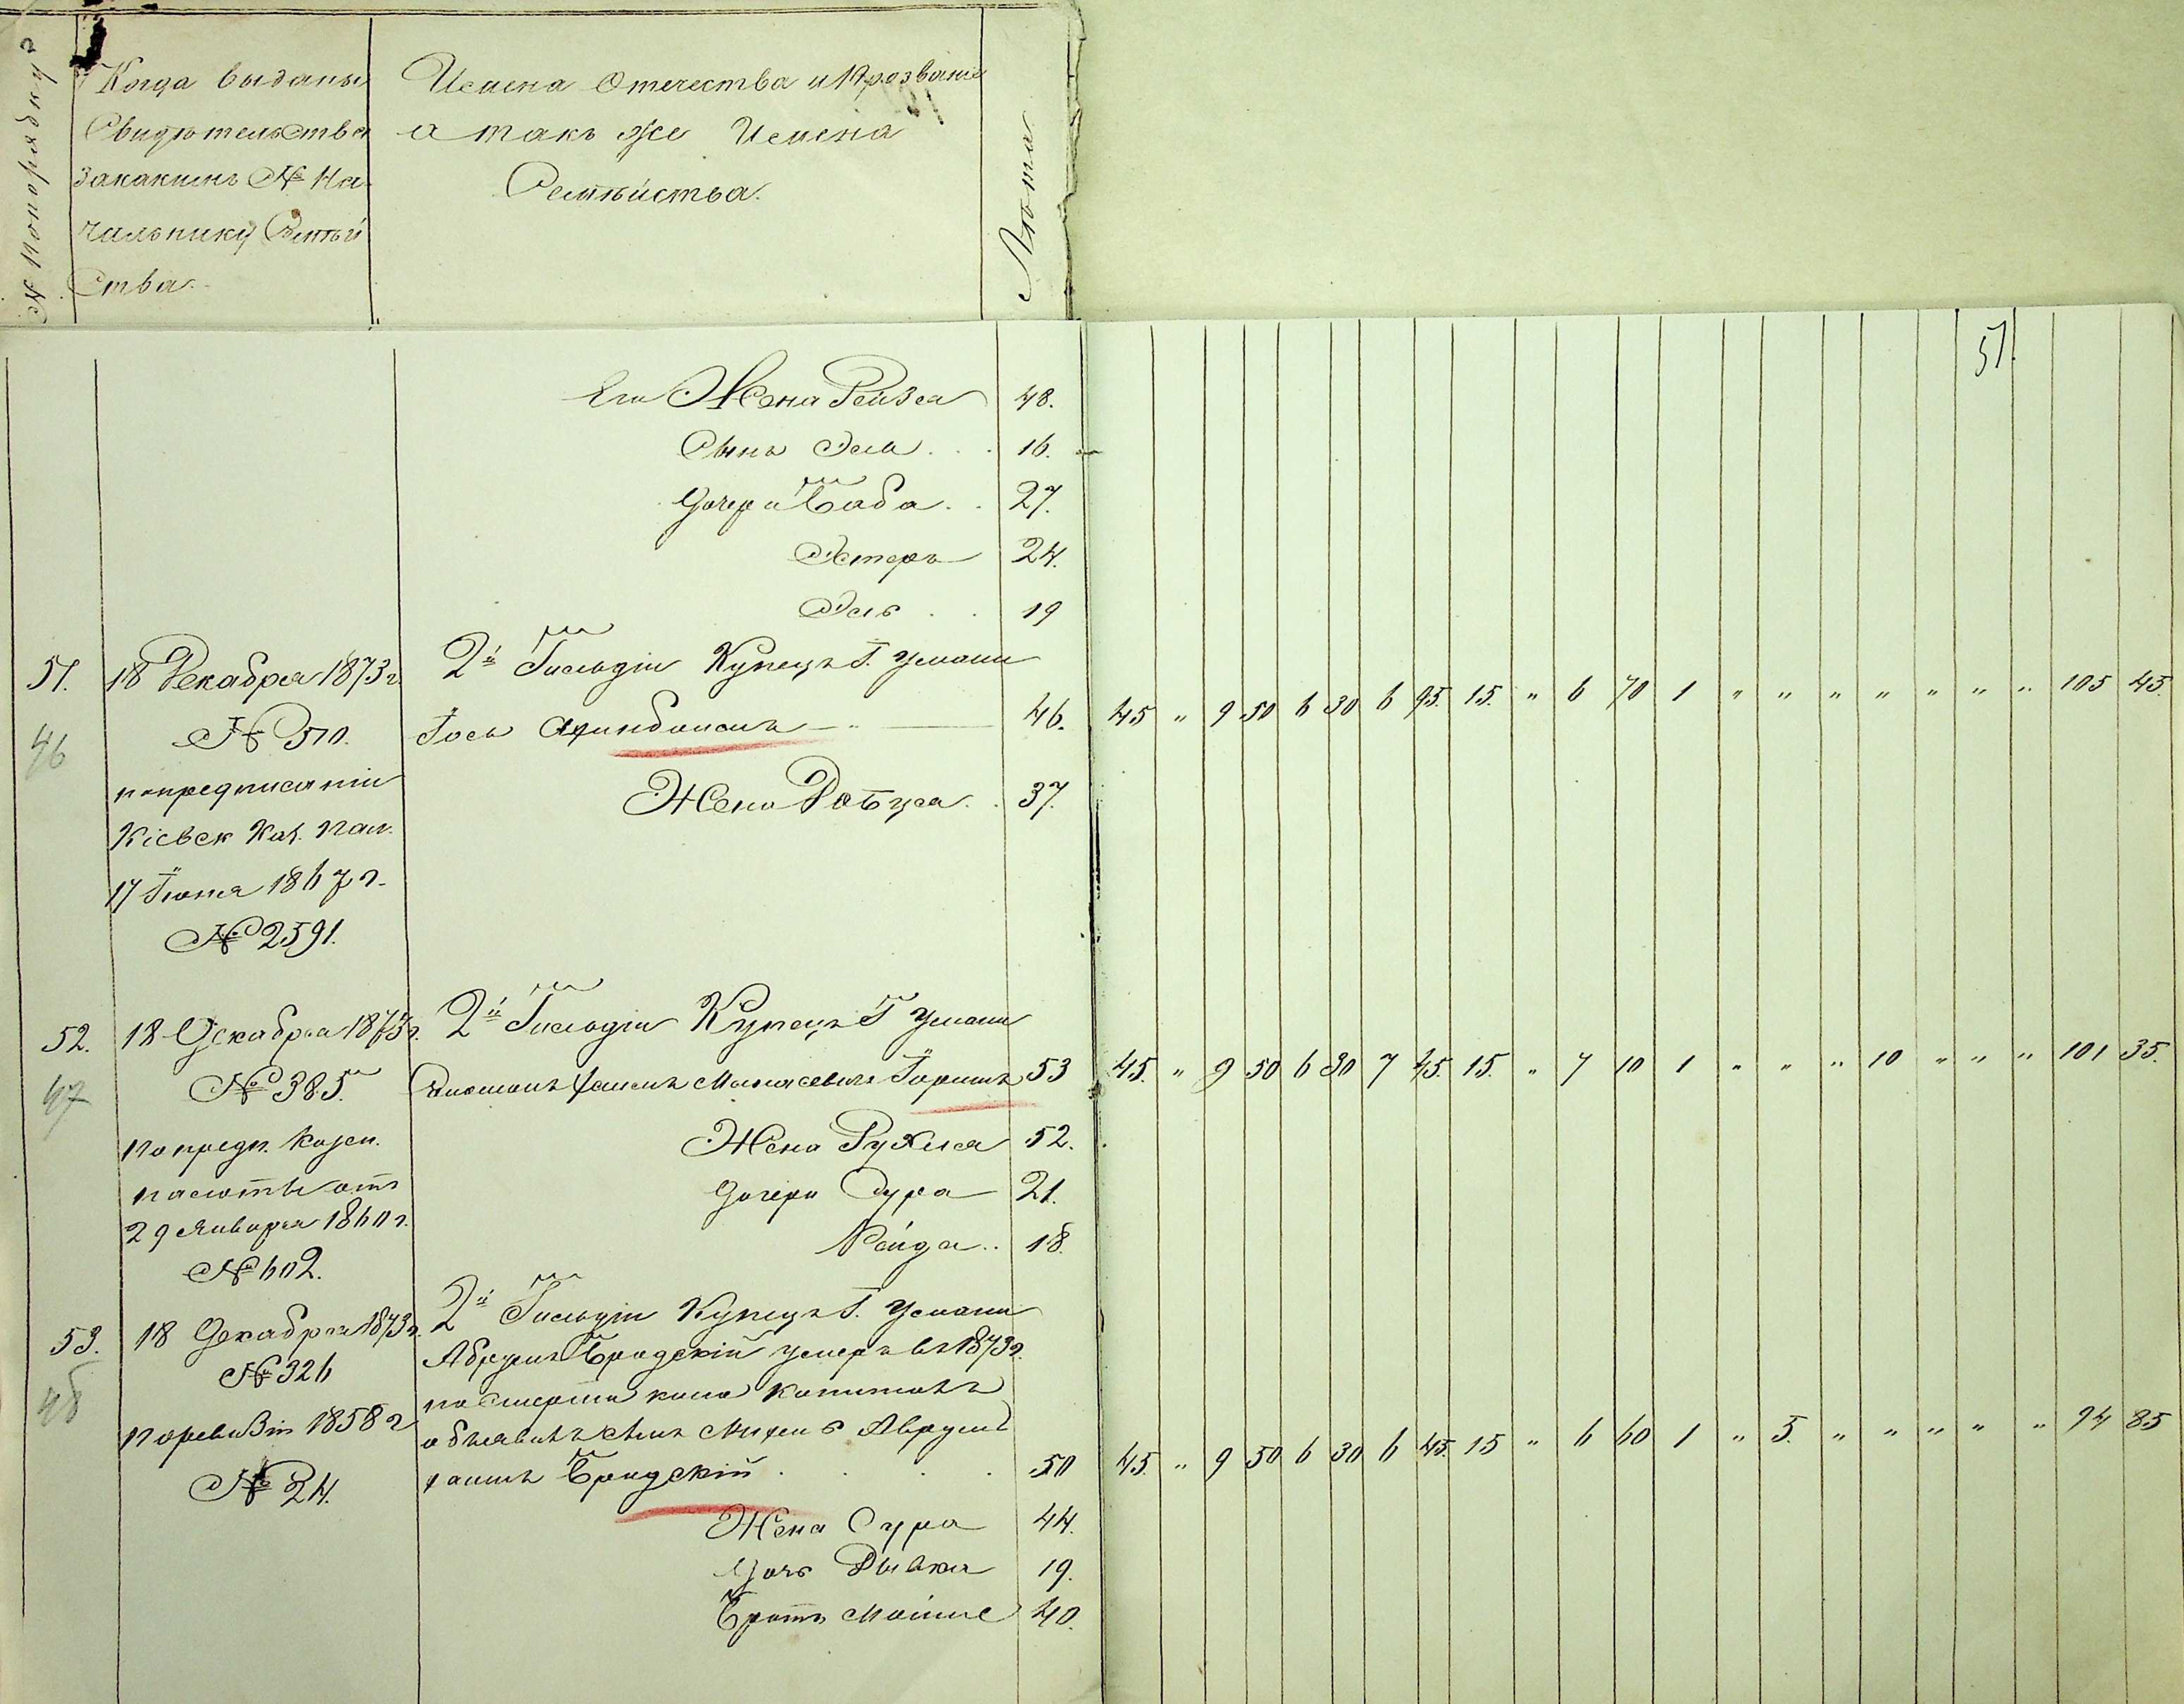 № по порядку
Когда выданы
Свидѣтельства
за какимъ № На
чальнику Семѣй
ства.
Имена Отечества и Прозванiя
а такъ же Имена
Семѣйства.
Лѣта
51.
Его Жена Рейзя 48.
Сынъ 16.
Дочери Баба 27.
Эстеръ 24.
19
51. 18 Декабря 1873 г. 2й Гильдiи Купецъ Г. Умани
46 № 370. Iось 46. 45 " 9 50 6 30 6 95 15 " 6 70 1 " " " " " " " 105 45.
по предписанiи Жена 37.
Кiевск Каз. Пал.
17 Iюня 1867 г.
№ 2591.
52. 18 Декабря 1873 г. 2й Гильдiи Купецъ Г Умани
47 № 385. 53 45. " 9 50 6 30 7 45. 15. " 7 10 1 " " " 10 " " " 101 35.
по предп. Казен. Жена Рухля 52.
палаты отъ Дочери Сура 21.
29 Января 1860 г. 18.
№ 602.
53. 18 Декабря 1873 г. 2й Гильдiи Купецъ Г. Умани
48 № 326 Абрумъ Бродскiй умеръ въ 1873 г.
по смерти коего капиталъ
по ревизiи 1858 г объявилъ
№ 24. Бродскiй 50 45. " 9 50 6 30 6 45. 15 " 6 60 1 " 5. " " " " " 94 85
Жена Сура 44.
Дочь Рывка 19.
Братъ 40.